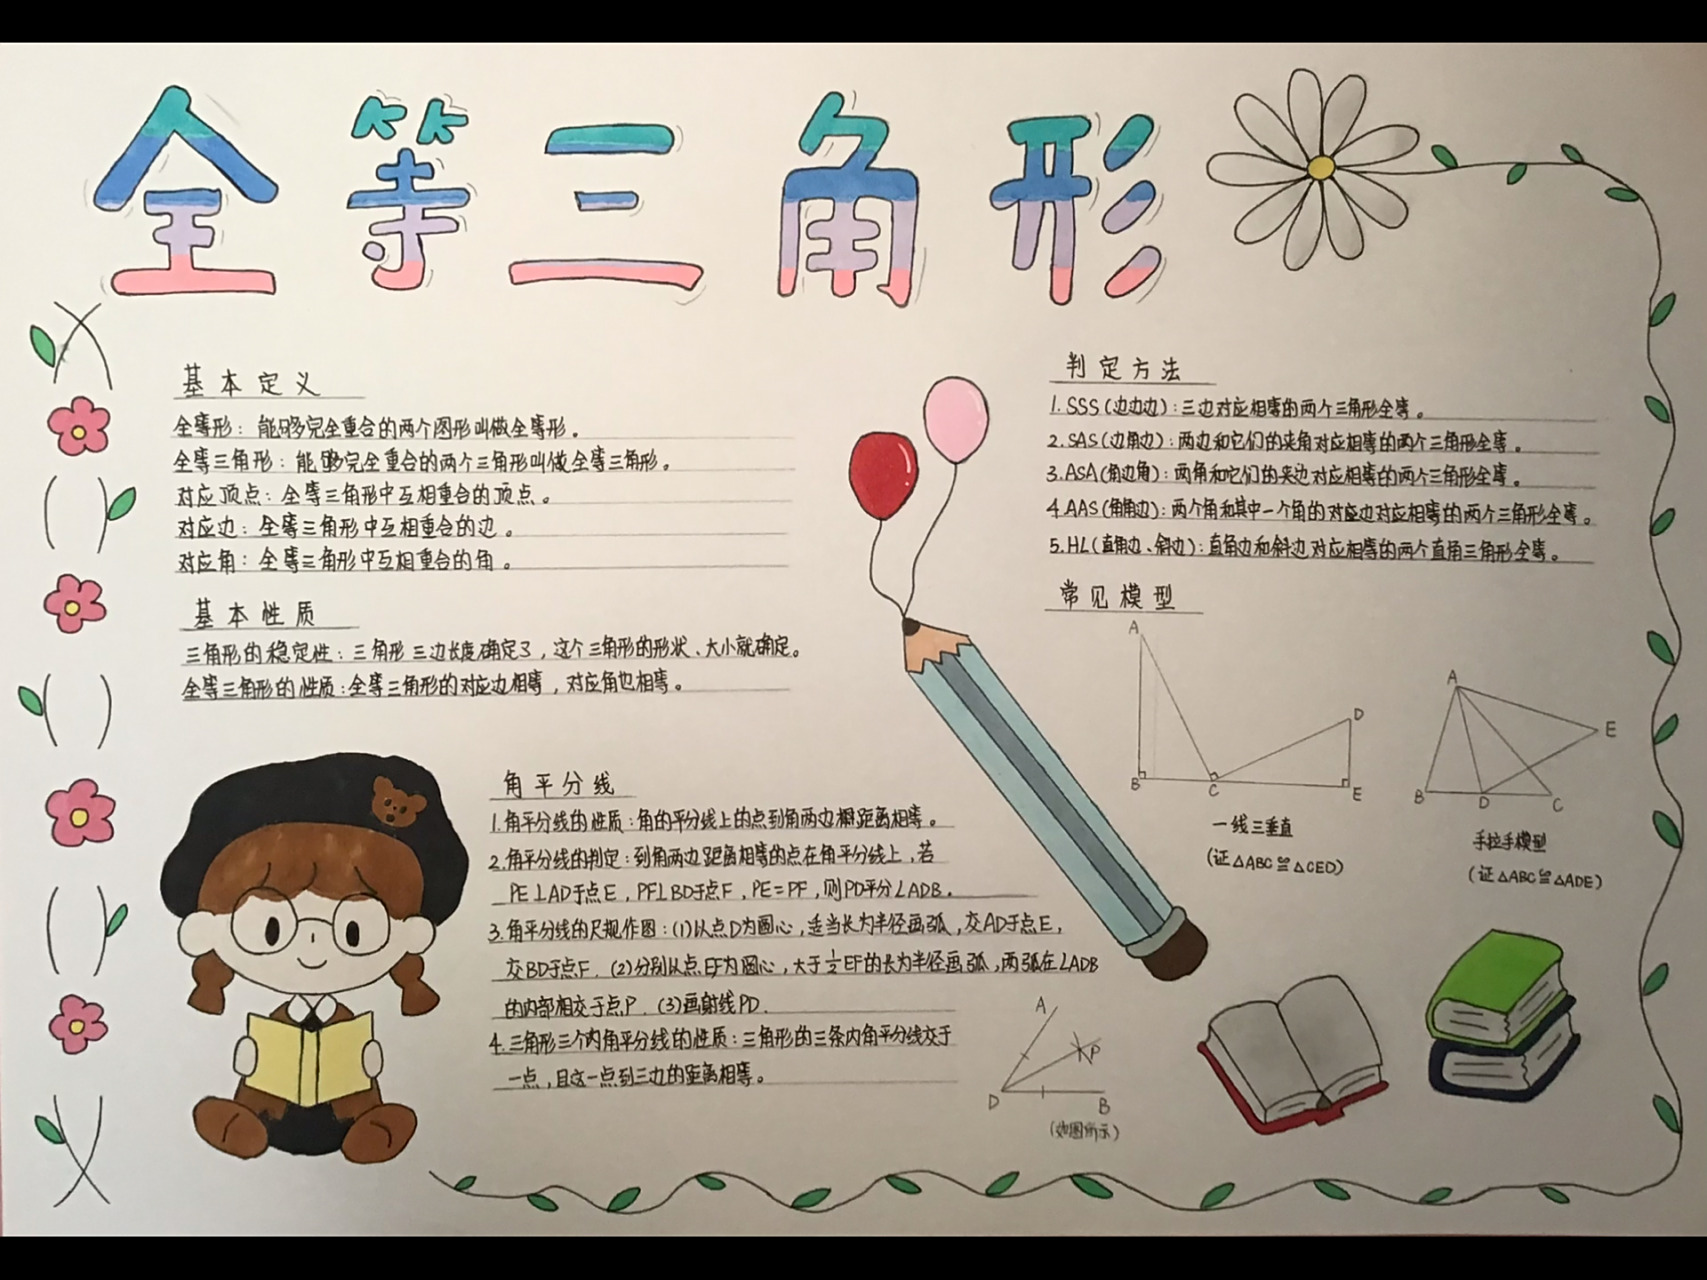 全等三角形
基本定义
全等形：能够完全重合的两个图形叫做全等形。
全等三角形：能够完全重合的两个三角形叫做全等三角形。
对应顶点：全等三角形中互相重合的顶点。
对应边：全等三角形中互相重合的边。
对应角：全等三角形中互相重合的角。
基本性质
三角形的稳定性：三角形三边长度确定了，这个三角形的形状、大小就确定。
全等三角形的性质：全等三角形的对应边相等，对应角也相等。
角平分线
1.角平分线的性质：角的平分线上的点到角两边距离相等。
2.角平分线的判定：到角两边距离相等的点在角平分线上，若
PE⊥AD于点E，PF⊥BD于点F，PE=PF，则PD平分∠ADB.
3.角平分线的尺规作图：(1)以点D为圆心，适当长为半径画弧，交AD于点E，
交BD于点F.(2)分别以点EF为圆心，大于½EF的长为半径画弧，两弧在∠ADB
的内部相交于点P.(3)画射线PD.
4.三角形三个内角平分线的性质：三角形的三条内角平分线交于
一点，且这一点到三边的距离相等。
A
P
D
B
(如图所示)
判定方法
1.SSS(边边边)：三边对应相等的两个三角形全等。
2.SAS(边角边)：两边和它们的夹角对应相等的两个三角形全等。
3.ASA(角边角)：两角和它们的夹边对应相等的两个三角形全等。
4.AAS(角角边)：两个角和其中一个角的对应边对应相等的两个三角形全等。
5.HL(直角边、斜边)：直角边和斜边对应相等的两个直角三角形全等。
常见模型
A
D
B
C
E
一线三垂直
(证△ABC≌△CED)
A
E
B
D
C
手拉手模型
(证△ABC≌△ADE)